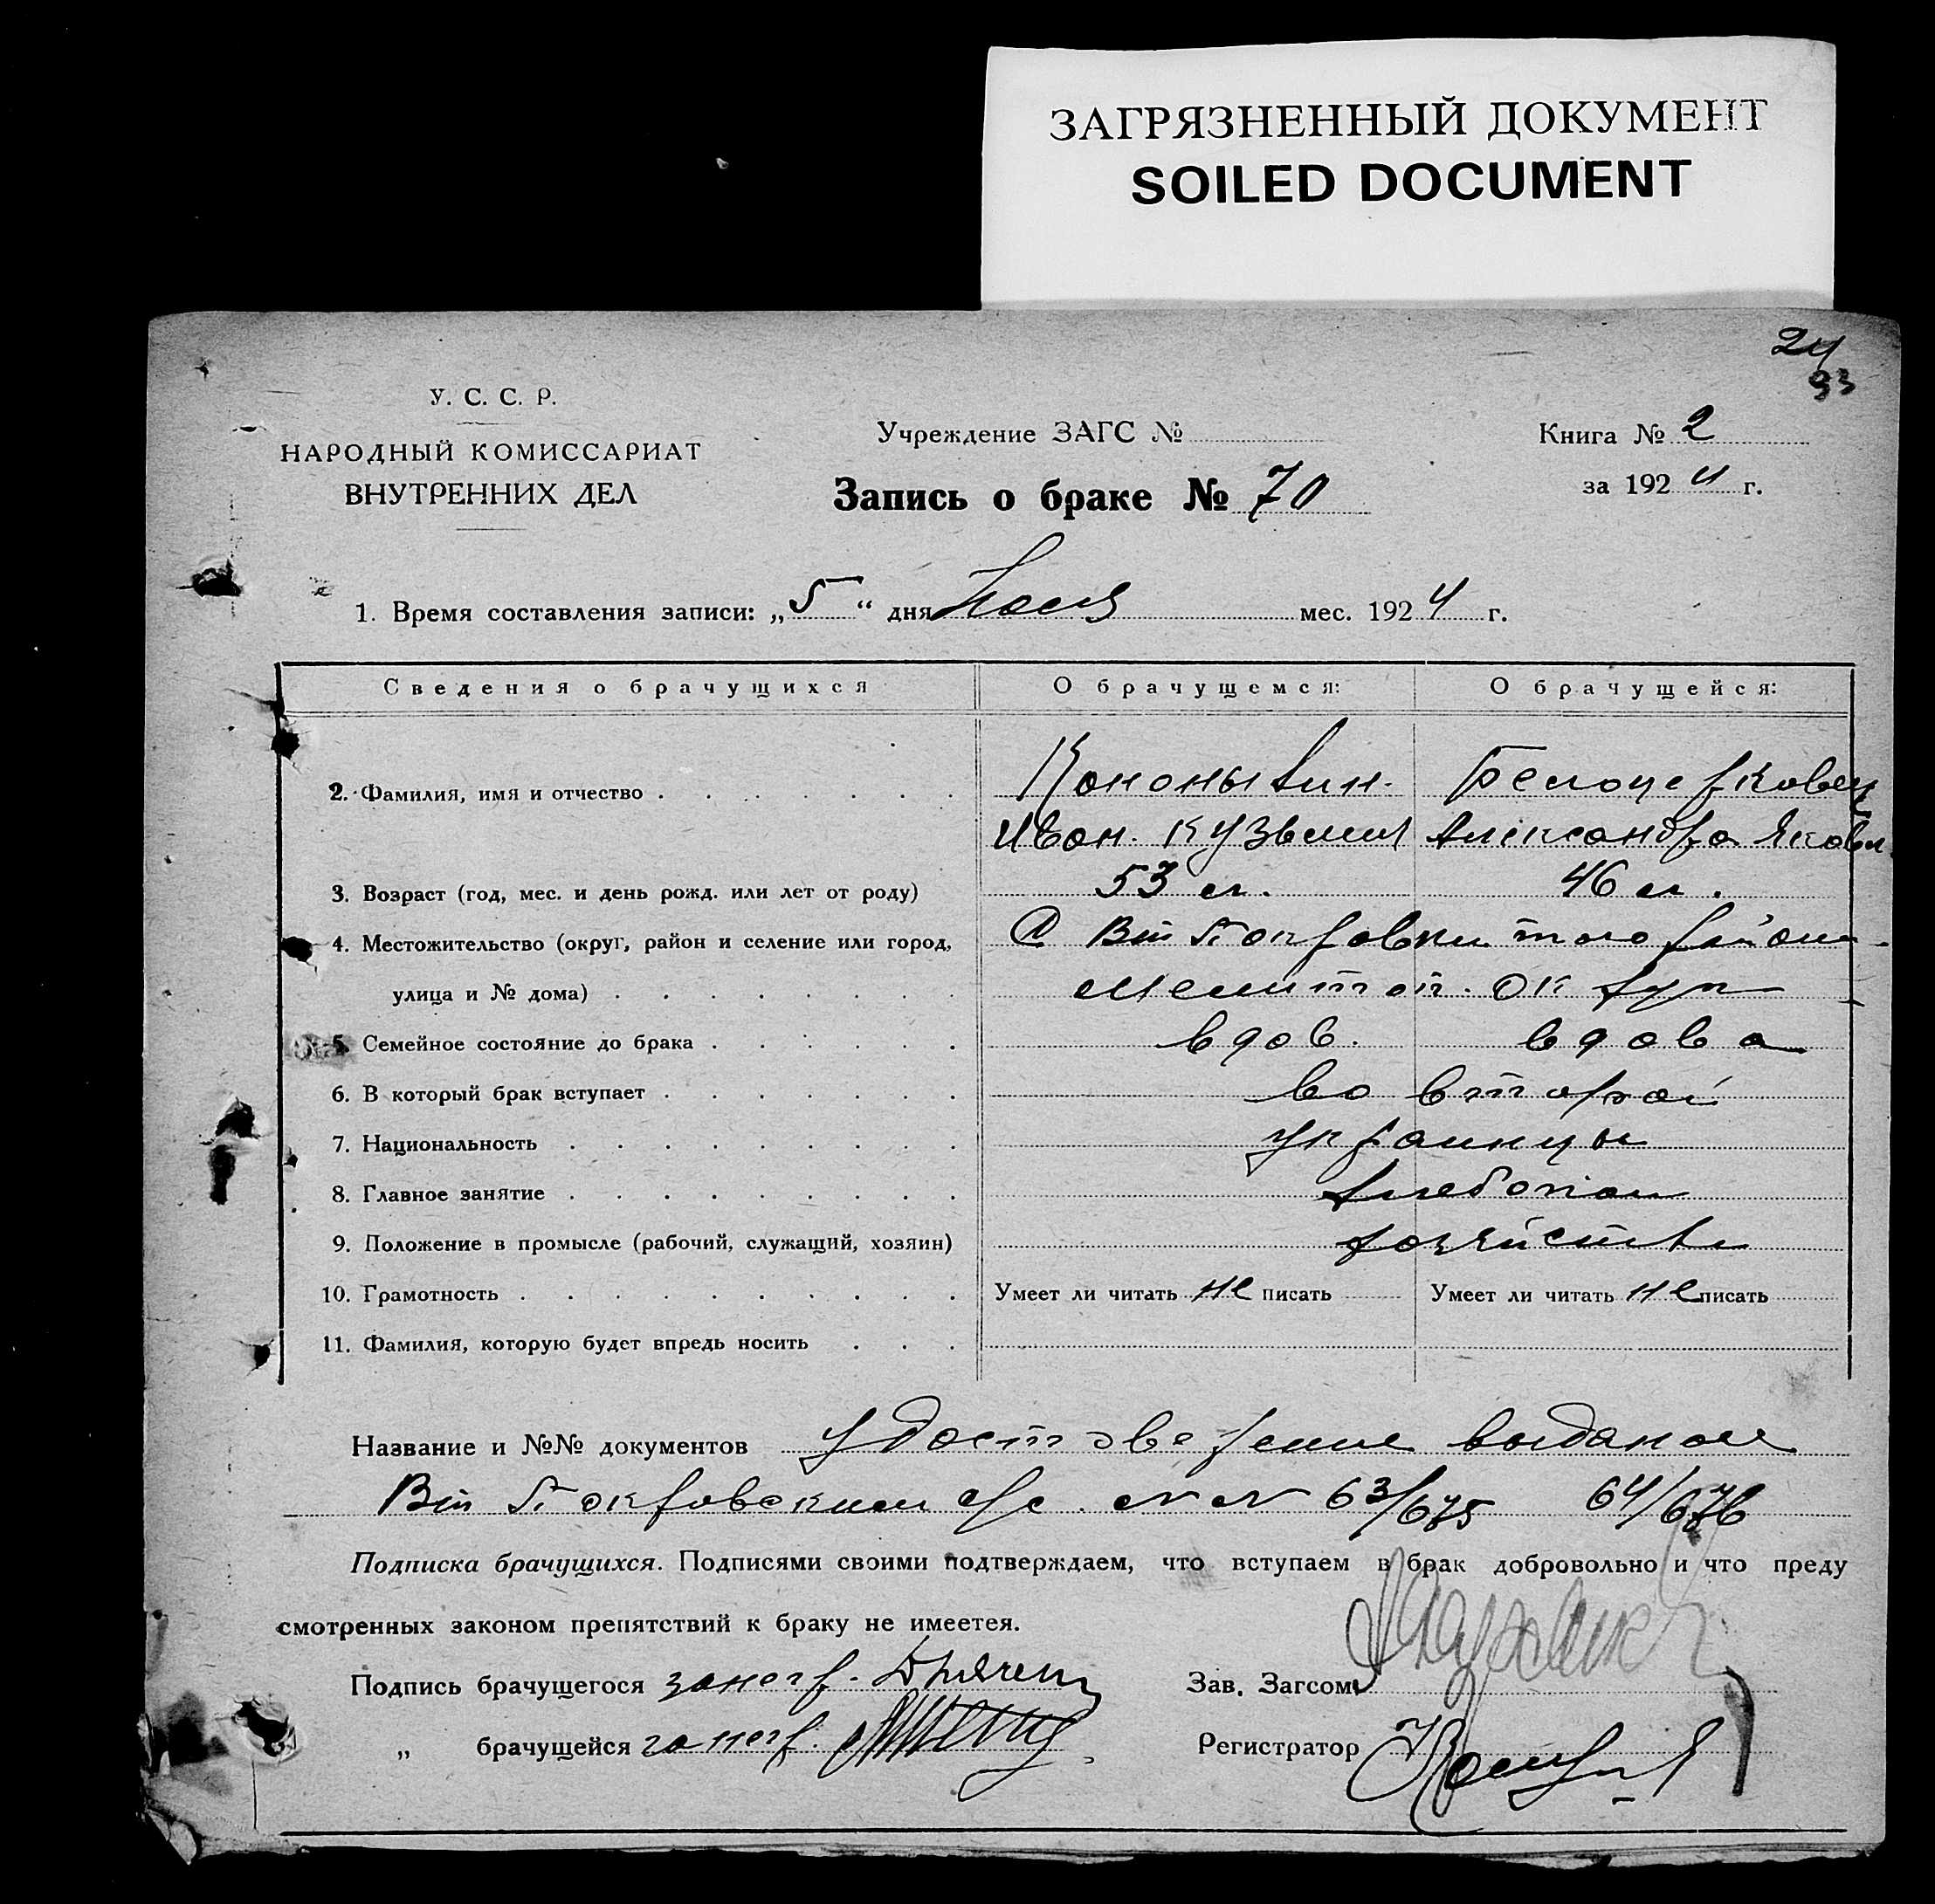 ЗАГРЯЗНЕННЫЙ ДОКУМЕНТ
SOILED DOCUMENT
24
93
У. С. С. Р.
НАРОДНЫЙ КОМИССАРИАТ
ВНУТРЕННИХ ДЕЛ
Учреждение ЗАГС №
Книга № 2
за 1924 г.
Запись о браке № 70
1. Время составления записи: „5“ дня мес. 1924 г.
Сведения о брачущихся О брачущемся: О брачущейся:
2. Фамилия, имя и отчество Белоцерковец
Иван. Кузьмич Александра Яковл.
3. Возраст (год, мес. и день рожд. или лет от роду) 53 л. 46 л.
4. Местожительство (округ, район и селение или город, В Покровки того района
улица и № дома) Мелитоп. округа
5. Семейное состояние до брака вдов. вдова
6. В который брак вступает во второй
7. Национальность украинцы
8. Главное занятие хлебопаш
9. Положение в промысле (рабочий, служащий, хозяин)
10. Грамотность Умеет ли читать не писать Умеет ли читать не писать
11. Фамилия, которую будет впредь носить
Название и №№ документов удостоверение
Покровским с/с. №№ 63/675 64/676
Подписка брачущихся. Подписями своими подтверждаем, что вступаем в брак добровольно и что преду
смотренных законом препятствий к браку не имеетея.
Подпись брачущегося за негр.
Зав. Загсом
„ брачущейся за негр.
Регистратор